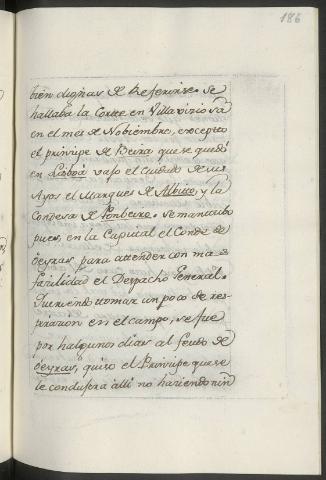 186
bien digñas de Referirse. se
hallaba la Corte en Villaviziosa
en el mes de Nobiembre, excepto
el prinzipe de Beira que se quedó
en Lisboa vajo el Cuidado de sus
Ayos el Marques de Albito, y la
Condesa de Pombeiro. se mantubo
pues, en la Capital el Conde de
Oeyras para attender con mas
fazilidad el Despacho General.
Queriendo ttomar un poco de res-
pirazion en el campo, se fue
por halgunos dias al feudo de
Oeyras, quiso el Prinzipe que se
le condujera alli no haziendo nin